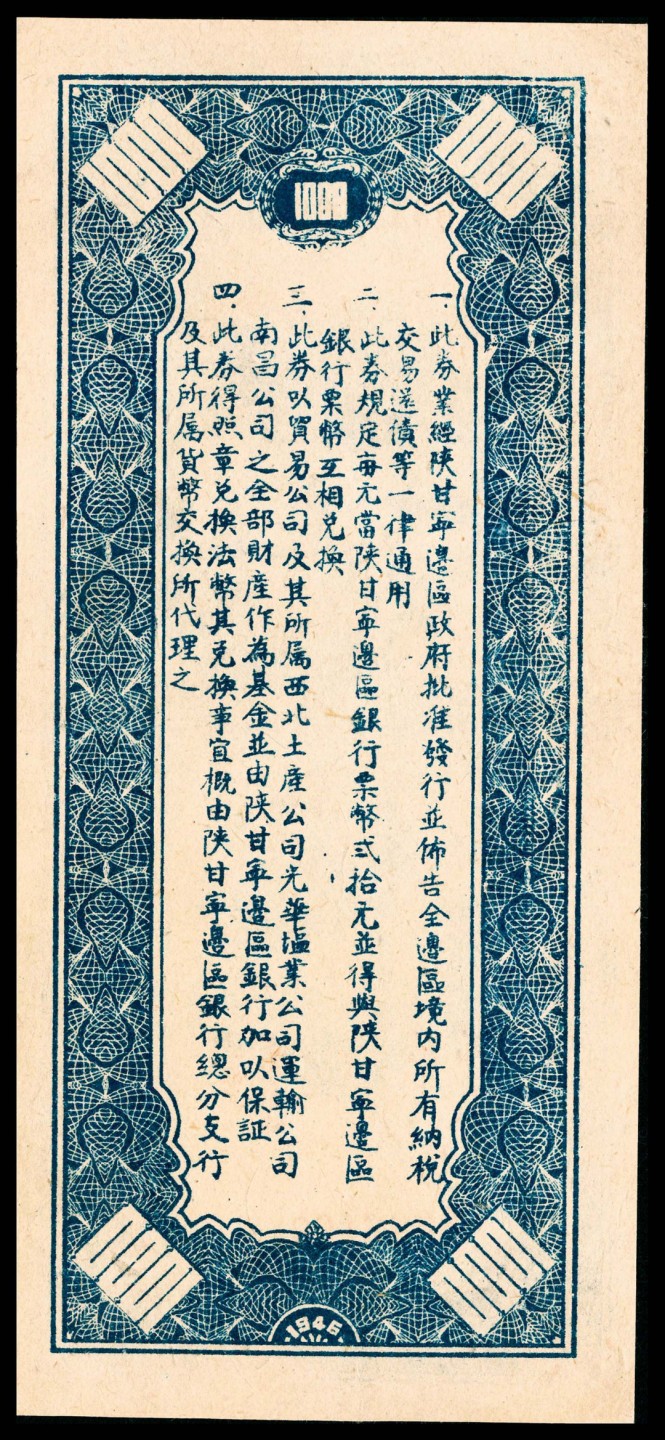 1000
1000
1000
一、此券業經陝甘寧邊區政府批准發行並佈告全邊區境內所有納稅
交易還債等一律通用
二、此券規定每元當陝甘寧邊區銀行票幣弍拾元並得與陝甘寧邊區
銀行票幣互相兌換
三、此券以貿易公司及其所屬西北土產公司光華塩業公司運輸公司
南昌公司之全部財產作為基金並由陝甘寧邊區銀行加以保証
四、此券得照章兌換法幣其兌換事宜概由陝甘寧邊區銀行總分支行
及其所屬貨幣交換所代理之
1000
1000
1946